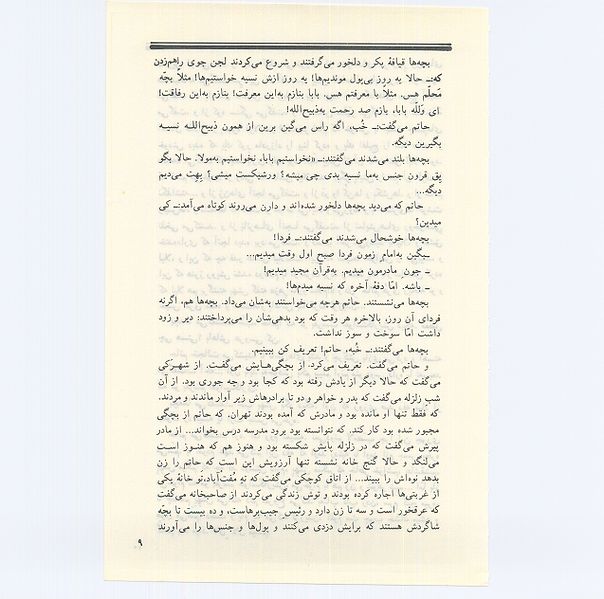 بچه‌ها قیافهٔ پکر و دلخور می‌گرفتند و شروع می‌کردند لجن جوی راهم‌زدن
که:ـ حالا یه روز بی‌پول موندیم‌ها! یه روز ازش نسیه خواستیم‌ها! مثلاً بچّه
محلّم هس. مثلاً با معرفتم هس. بابا بنازم به‌این معرفت! بنازم به‌این رفاقت!
ای وَللّه بابا، بازم صد رحمت به‌ذبیح‌الله!
حاتم می‌گفت:ـ خُب، اگه راس می‌گین برین از همون ذبیح‌اللـه نسیـه
بگیرین دیگه.
بچه‌ها بلند می‌شدند می‌گفتند:ـ «نخواستیم بابا، نخواستیم به‌مولا. حالا بگو
یِق قرون جنس به‌ما نسیه بدی چی میشه؟ ورشیکست میشی؟ بِهِت می‌دیم
دیگه...
حاتم که می‌دید بچه‌ها دلخور شده‌اند و دارن می‌روند کوتاه می‌آمد:ـ کی
میدین؟
بچه‌ها خوشحال می‌شدند می‌گفتند:ـ فردا!
ـ بگین به‌امامِ زمون فردا صبح اول وقت میدیم...
ـ جونِ مادرمون میدیم. به‌قرآن مجید میدیم!
ـ باشه. امّا دفهٔ آخره که نسیه میدم‌ها!
بچه‌ها می‌نشستند. حاتم هرچه می‌خواستند به‌شان می‌داد. بچه‌ها هم، اگرنه
فردای آن روز، بالاخره هر وقت که بود بدهی‌شان را می‌پرداختند: دیر و زود
داشت امّا سوخت و سوز نداشت.
بچه‌ها می‌گفتند:ـ خُبه، حاتم! تعریف کن ببینیم.
و حاتم می‌گفت. تعریف می‌کرد. از بچگی‌هـایش می‌گفـت. از شهـرَکی
می‌گفت که حالا دیگر از یادش رفته بود که کجا بود و چه جوری بود. از آن
شبِ زلزله می‌گفت که پدر و خواهر و دو تا برادرهاش زیر آوار ماندند و مردند.
که فقط تنها او مانده بود و مادرش که آمده بودند تهران. که حاتم از بچگی
مجبور شده بود کار کند. که نتوانسته بود برود مدرسه درس بخواند... از مادر
پیرش می‌گفت که در زلزله پایش شکسته بود و هنوز هم که هنـوز اسـت
می‌لنگد و حالا کُنج خانه نشسته تنها آرزویش این است که حاتم را زن
بدهد نوه‌اش را ببیند... از اتاق کوچکی می‌گفت که تهِ مُفت‌آباد، تو خانهٔ یکی
از غربتی‌ها اجاره کرده بودند و توش زندگی می‌کردند از صاحبخانه می‌گفت
که عرقخور است و سه تا زن دارد و رئیسِ جیب‌برهاست، و ده بیست تا بچّه
شاگردش هستند که برایش دزدی می‌کنند و پول‌ها و جنس‌ها را می‌آورند
۹